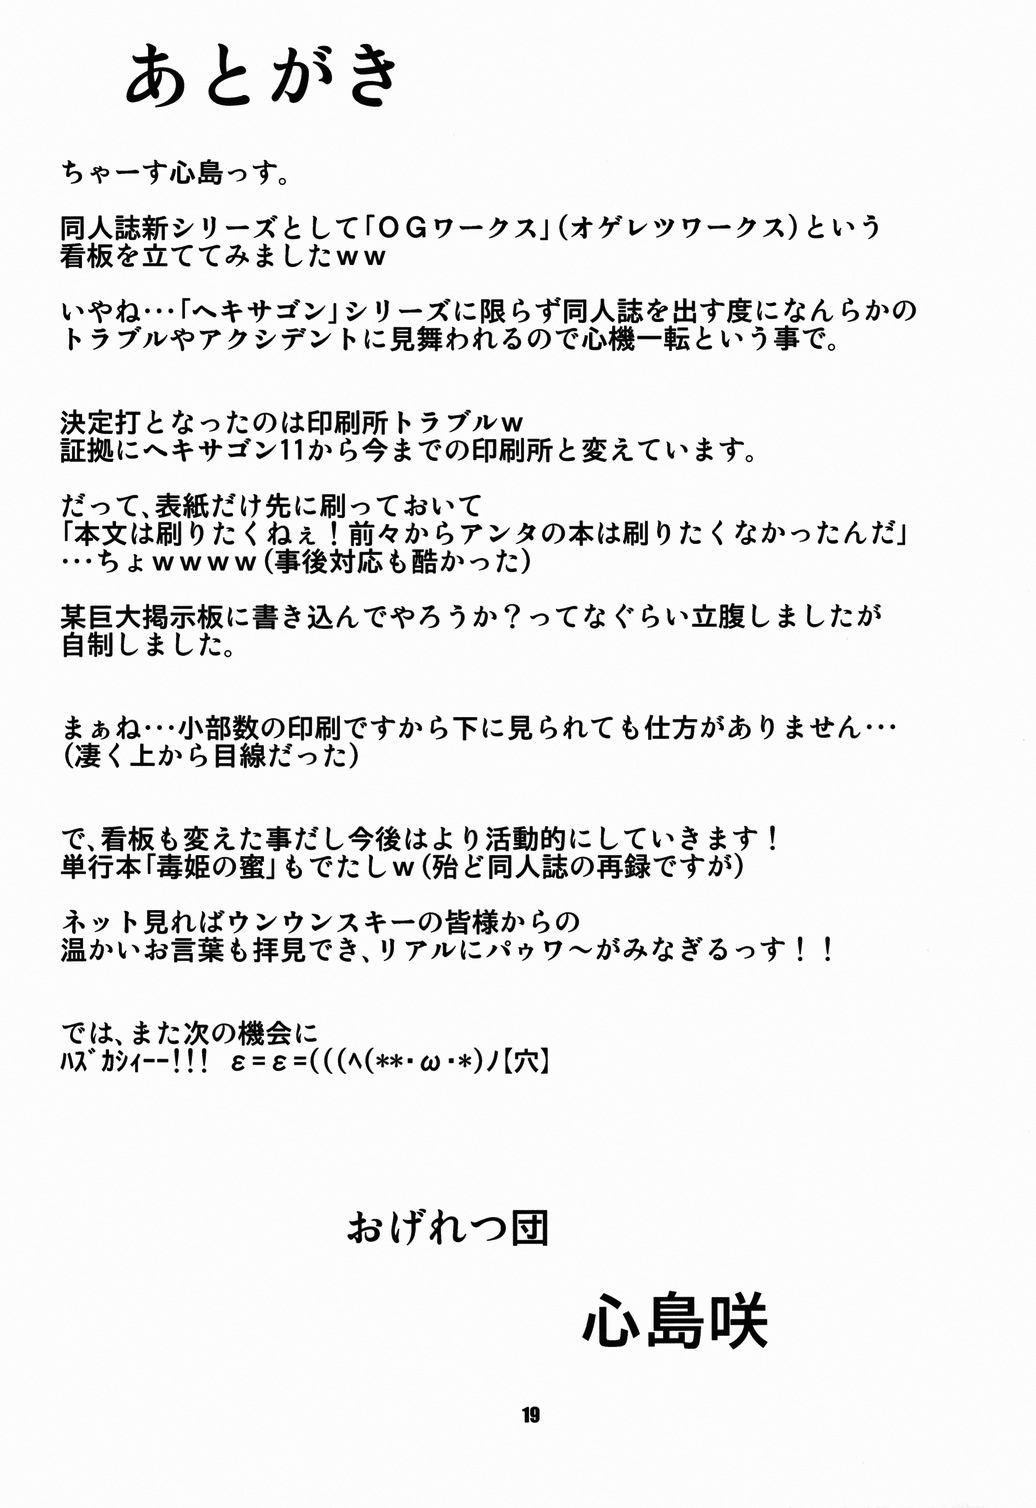 あとがき
ちゃーす心島っす。
同人誌新シリーズとして「ＯＧワークス」（オゲレツワークス）という
看板を立ててみましたｗｗ
いやね…「ヘキサゴン」シリーズに限らず同人誌を出す度になんらかの
トラブルやアクシデントに見舞われるので心機一転という事で。
決定打となったのは印刷所トラブルｗ
証拠にヘキサゴン11から今までの印刷所と変えています。
だって、表紙だけ先に刷っておいて
「本文は刷りたくねぇ！前々からアンタの本は刷りたくなかったんだ」
…ちょｗｗｗｗ（事後対応も酷かった）
某巨大掲示板に書き込んでやろうか？ってなぐらい立腹しましたが
自制しました。
まぁね…小部数の印刷ですから下に見られても仕方がありません…
（凄く上から目線だった）
で、看板も変えた事だし今後はより活動的にしていきます！
単行本「毒姫の蜜」もでたしｗ（殆ど同人誌の再録ですが）
ネット見ればウンウンスキーの皆様からの
温かいお言葉も拝見でき、リアルにパゥワ～がみなぎるっす！！
では、また次の機会に
ﾊｽﾞｶｼｨｰｰ!!!　ε=ε=(((ﾍ(**・ω・*)ﾉ【穴】
おげれつ団
心島咲
19